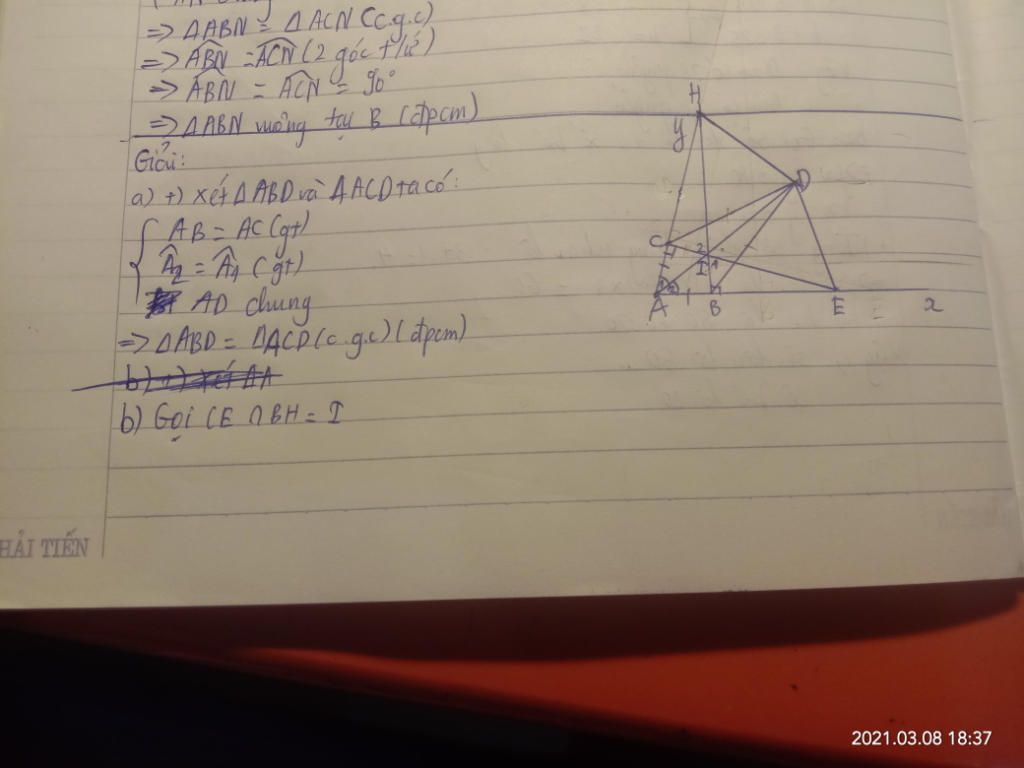 => ΔABN = ΔACN (c.g.c)
=> ABN = ACN (2 góc t/ứ)
=> ABN = ACN = 90°
=> ΔABN vuông tại B (đpcm)
Giải:
a) +) Xét ΔABD và ΔACD ta có:
AB = AC (gt)
A2 = A1 (gt)
AD chung
=> ΔABD = ΔACD (c.g.c) (đpcm)
b) +) Xét ΔA
b) Gọi CE ∩ BH = I
H
y
D
C
2
I 1
A
B
E
x
HẢI TIẾN
2021.03.08 18:37